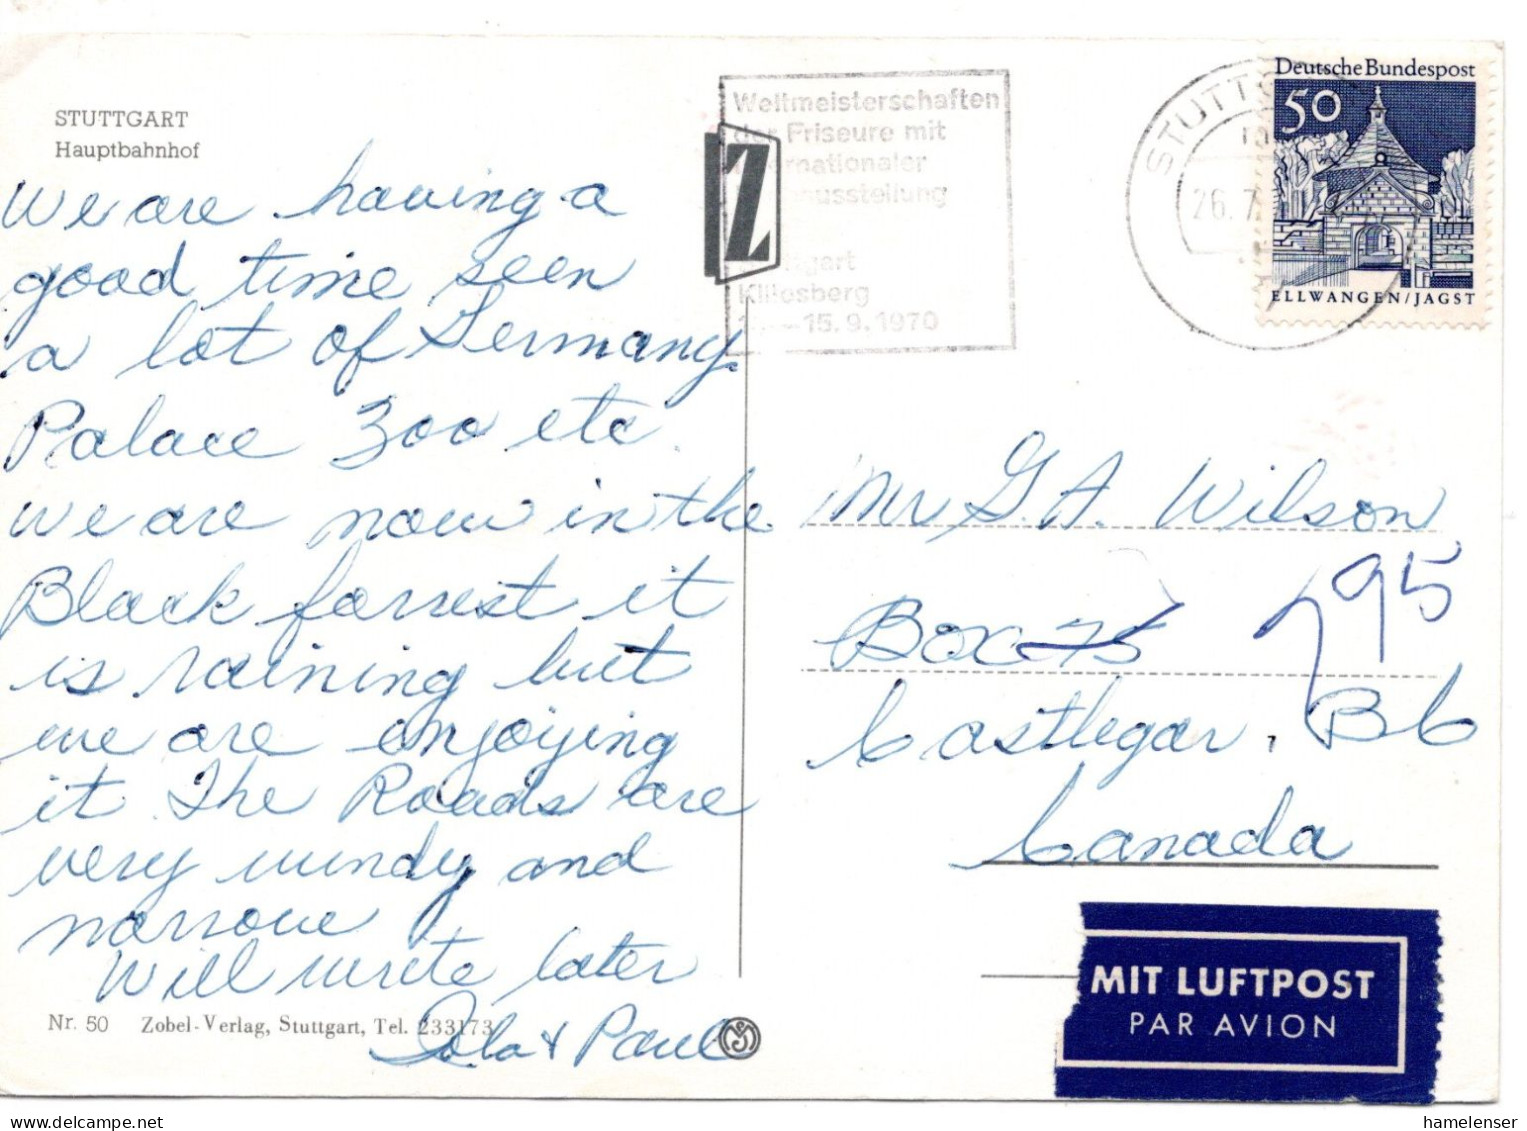 STUTTGART
Hauptbahnhof
We are having a
good time seen
a lot of Germany
Palace Zoo etc
we are now in the
Black forrest it
is raining but
we are enjoying
it The Roads are
very windy and
narrow
Will write later
& Paul
Nr. 50 Zobel-Verlag, Stuttgart, Tel. 233173
Z
Weltmeisterschaften
der Friseure mit
internationaler
ausstellung
Stuttgart
Killesberg
–15.9.1970
STUTTG
26.7.
Deutsche Bundespost
50
ELLWANGEN/JAGST
Mr G. A. Wilson
Box 75 795
Castlegar, BC
Canada
MIT LUFTPOST
PAR AVION
hamelenser